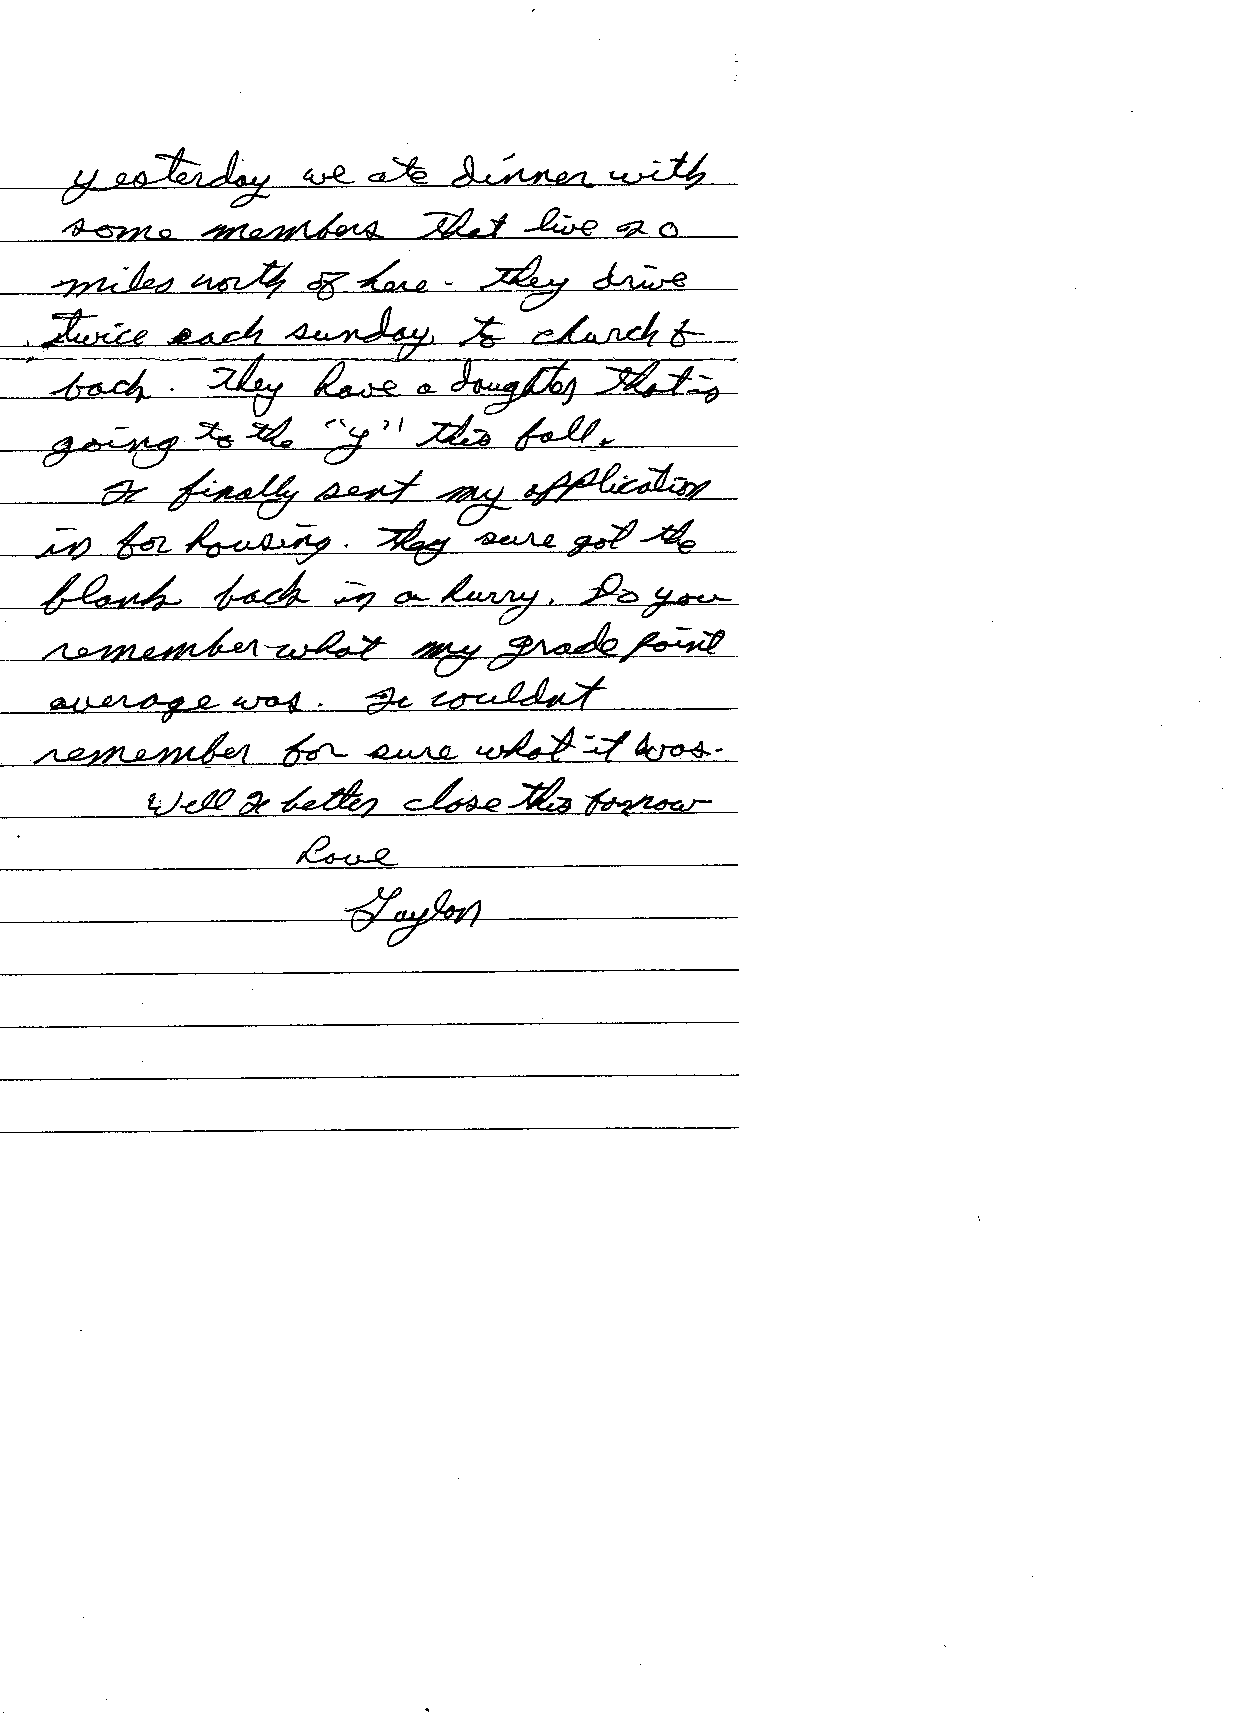 yesterday we ate dinner with
some members that live 20
miles north of here. They drive
twice each sunday to church &
back. They have a daughter that is
going to the "y" this fall.
I finally sent my application
in for housing. They sure got the
blank back in a hurry. Do you
remember what my grade point
average was. I couldnt
remember for sure what it was.
Well I better close this for now
Love
Gaylon